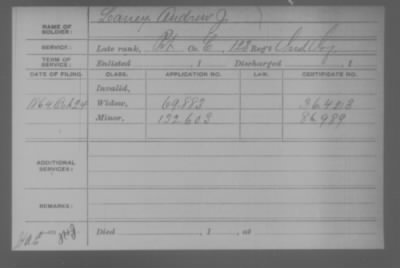 NAME OF SOLDIER: Andrew J.
SERVICE: Late rank, Pvt Co. E, 123 Reg't Ind Inf
TERM OF SERVICE: Enlisted , 1 Discharged , 1
DATE OF FILING. CLASS. APPLICATION NO. LAW. CERTIFICATE NO.
Invalid,
1864 Oct 24 Widow, 69.883
Minor, 132.603 86.989
ADDITIONAL SERVICES:
REMARKS:
Died , 1 , at